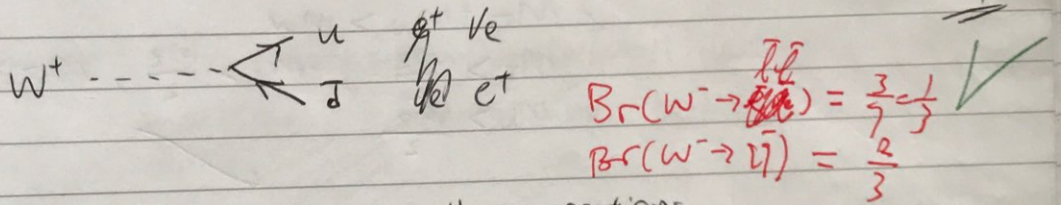 u e⁺ νe
W⁺ - - - - - -
d̄ e⁺
Br(W⁻ → l̄l) = 3/9 = 1/3
Br(W⁻ → qq̄) = 2/3